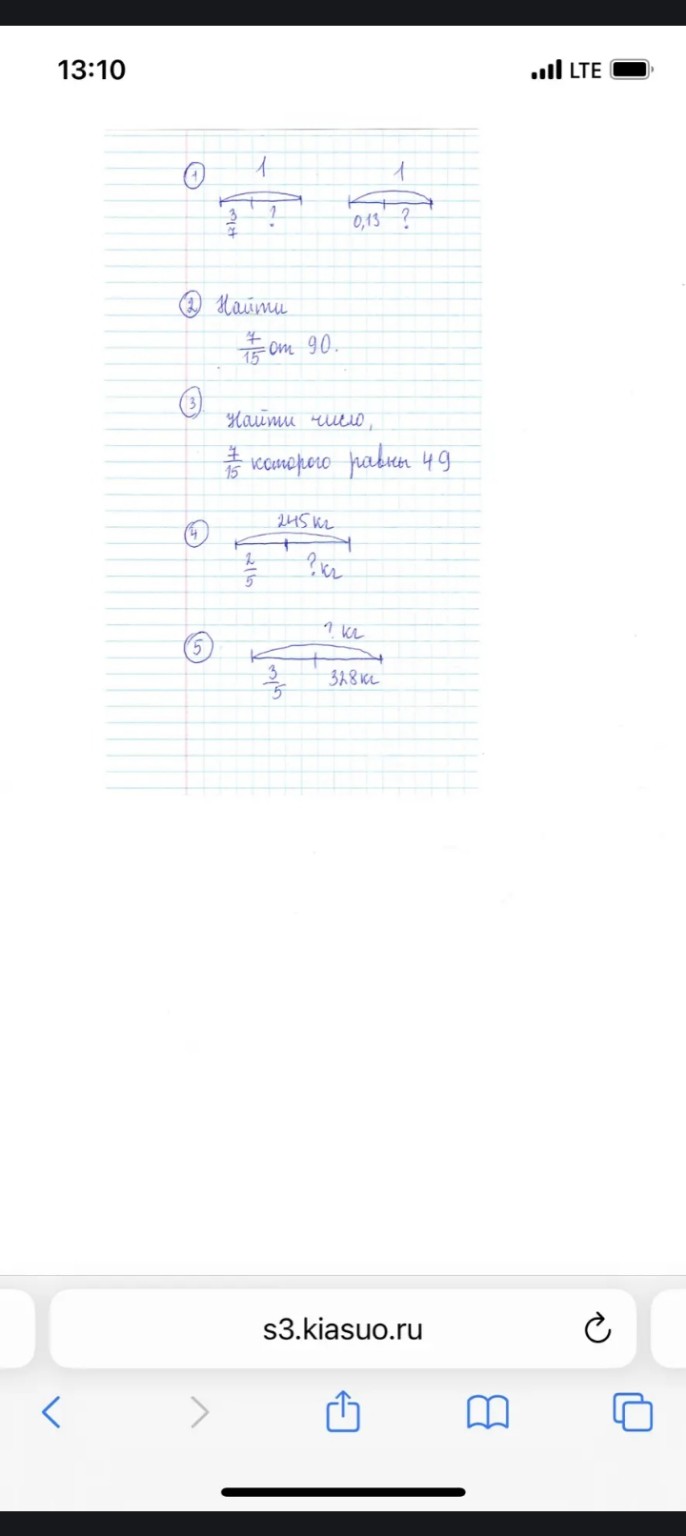 13:10 LTE
① 1 1
3/7 ? 0,13 ?
② Найти
7/15 от 90.
③
Найти число,
7/15 которого равны 49
④ 245 кг
2/5 ? кг
⑤ ? кг
3/5 328 кг
s3.kiasuo.ru